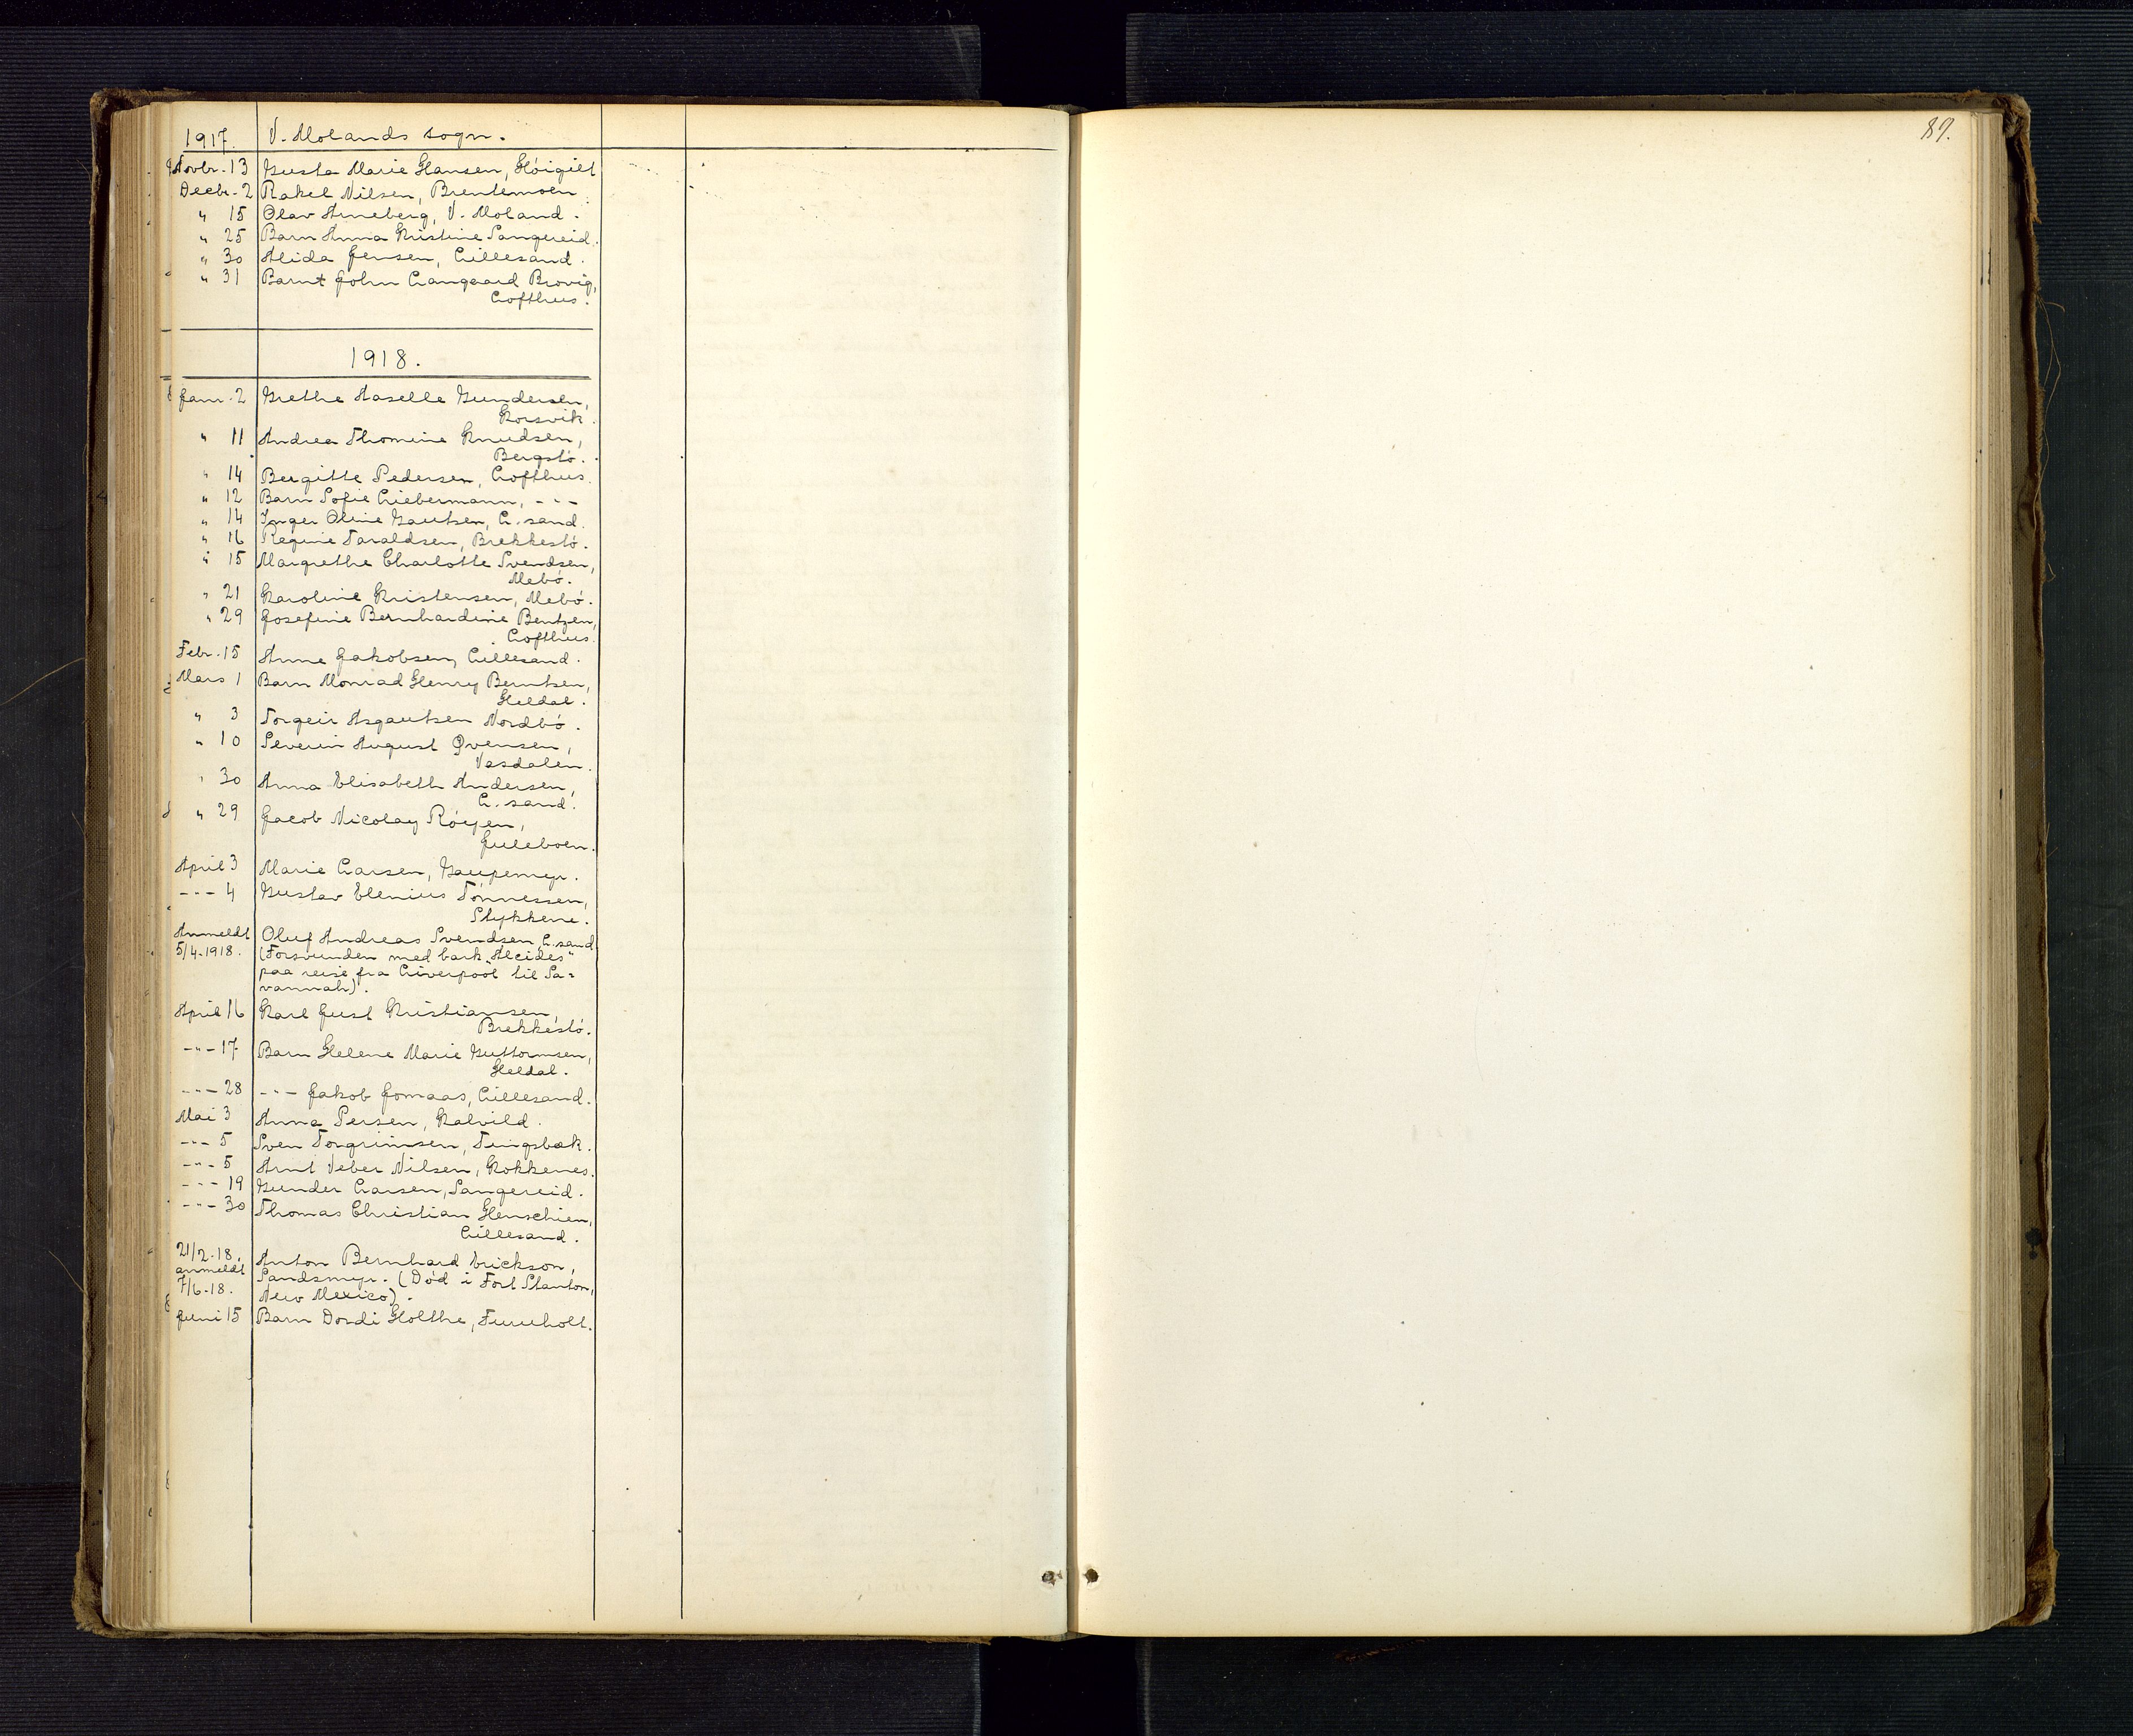 89.
1917. V. Molands sogn.
Novbr. 13 Gusta Marie Hansen, Höigilt
Decbr. 2 Rakel Nilsen, Brentemoen.
" 15 Olav Arneberg, V. Moland.
" 25 Barn Anna Kristine Sangereid.
" 30 Alida Jensen, Lillesand.
" 31 Barnt John Langaard Brovig,
Lofthus.
1918.
Janr. 2 Grethe Kaselle Gundersen,
Korsvik.
" 11 Andrea Thomine Knudsen,
Bergstö.
" 14 Bergitte Pedersen, Lofthus.
" 12 Barn Sofie Liebermann, - " -
" 14 Inger Oline Gautsen, L. sand.
" 16 Regine Taraldsen, Brekkestö.
" 15 Margrethe Charlotte Svendsen,
Mebö.
" 21 Karoline Kristensen, Mebö.
" 29 Josefine Bernhardine Bentzen,
Lofthus.
Febr. 15 Anne Jakobsen, Lillesand.
Mars 1 Barn Monrad Henry Berntsen,
Heldal.
" 3 Torgeir Asgautsen Nordbö.
" 10 Severin August Ovensen,
Vasdalen.
" 30 Anna Elisabeth Andersen,
L. sand.
" 29 Jacob Nicolay Röeyen,
Juleboen.
April 3 Marie Larsen, Gaupemyr.
- " - 4 Gustav Elenius Tönnessen,
Stykkene.
Anmeldt Oluf Andreas Svendsen, L. sand
5/4-1918. (Forsvunden med bark "Alcides"
paa reise fra Liverpool til Sa-
vannah).
April 16 Karl Just Kristiansen,
Brekkestö.
- " - 17 Barn Helene Marie Guttormsen,
Heldal.
- " - 28 - " - Jakob Jomaas, Lillesand.
Mai 3 Anna Persen, Kalvild.
- " - 5 Sven Torgrimsen, Tingsbæk.
- " - 5 Arnt Veber Nilsen, Kokkenes.
- " - 19 Gunder Larsen, Sangereid.
- " - 30 Thomas Christian Henschien,
Lillesand.
21/2-18. Anton Bernhard Erickson,
anmeldt Sandsmyr. (Död i Fort Stanton,
7/6-18. New Mexico).
Juni 15 Barn Dordi Holthe, Furuholt.